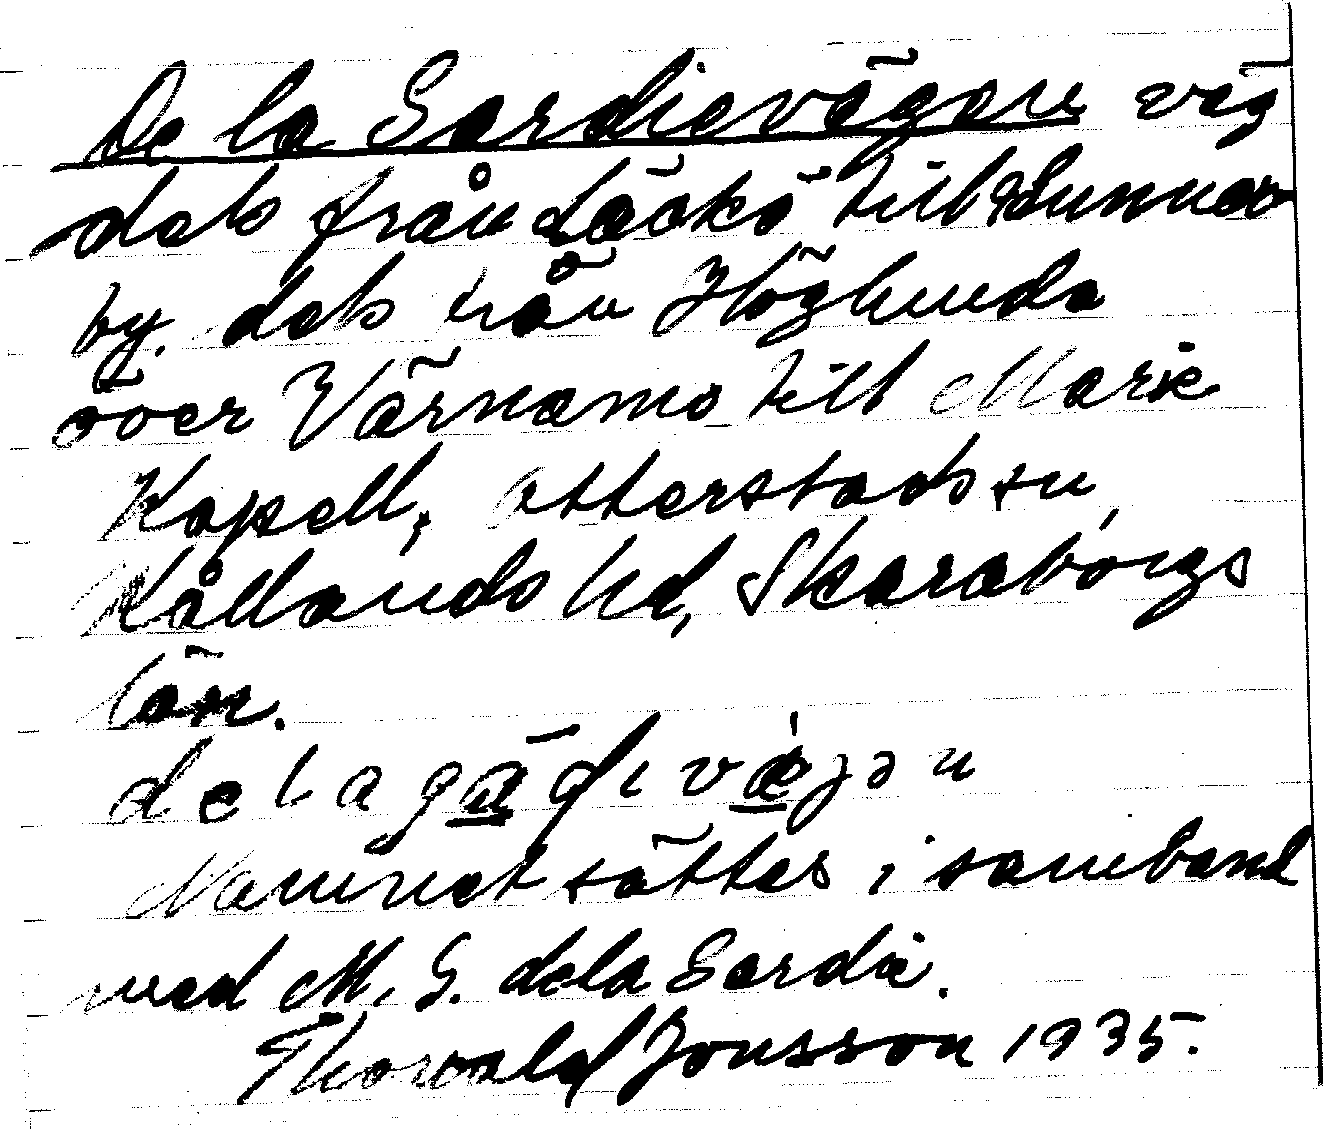 De la Gardievägen väg
dels från Läckö till Sunner
by. dels från Höglunda
över Värnamo till Marie
Kapell, Otterstads sn,
Kållands hd, Skaraborgs
län.
de la ga̲ḍi væ̲̀jən
Namnet sättes i samband
med M. G. de la Gardie.
Thorvald Jonsson 1935.